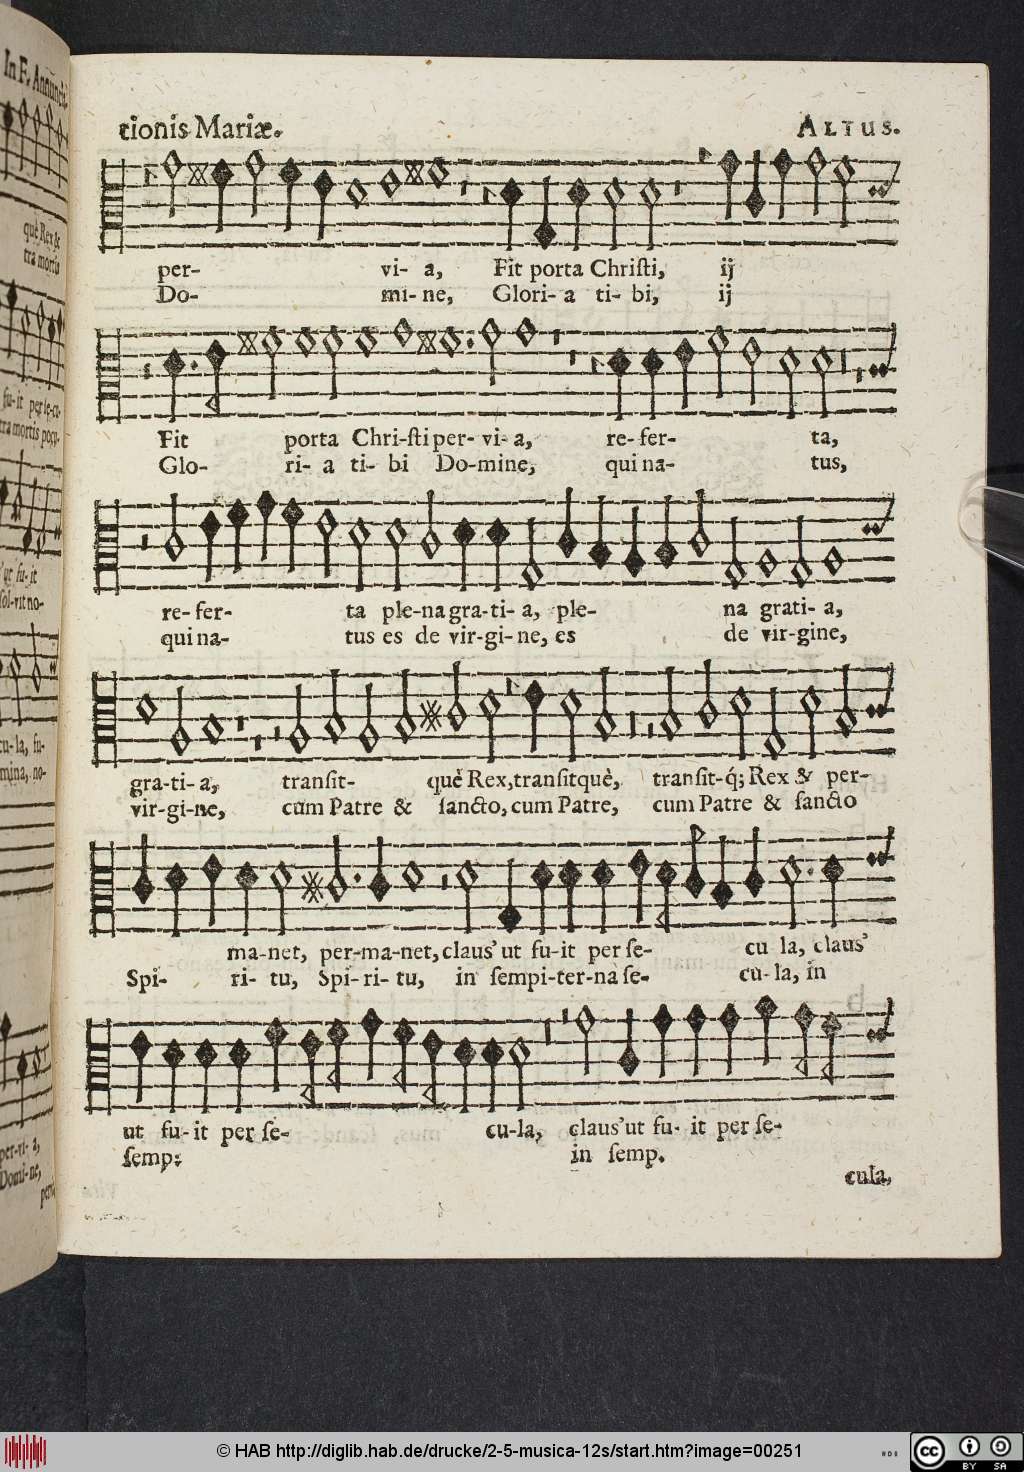 In F. Annuncia-
què Rex &
tra mortis
fu-it per se-cu-
tra mortis poti-
ut fu-it
sol-vit no-
cu-la, fu-
mina, no-
per-vi-a,
Domi-ne,
tionis Mariæ.
ALTUS.
per- vi- a, Fit porta Chriſti, ij
Do- mi-ne, Glori- a ti- bi, ij
Fit porta Chri-ſti per- vi- a, re-fer- ta,
Glo- ri- a ti- bi Do-mine, qui na- tus,
re-fer- ta ple-na gra-ti- a, ple- na grati- a,
qui na- tus es de vir-gi-ne, es de vir-gine,
gra-ti-a, tranſit- què Rex, tranſitquè, tranſit-q́; Rex & per-
vir-gi-ne, cum Patre & ſancto, cum Patre, cum Patre & ſancto
ma-net, per-ma-net, clauſ' ut fu-it per ſe- cu la, clauſ'
Spi- ri- tu, Spi-ri- tu, in ſempi-ter-na ſe- cu-la, in
ut fu-it per ſe- cu-la, clauſ' ut fu- it per ſe-
ſemp: in ſemp.
cula,
© HAB http://diglib.hab.de/drucke/2-5-musica-12s/start.htm?image=00251
cc BY SA